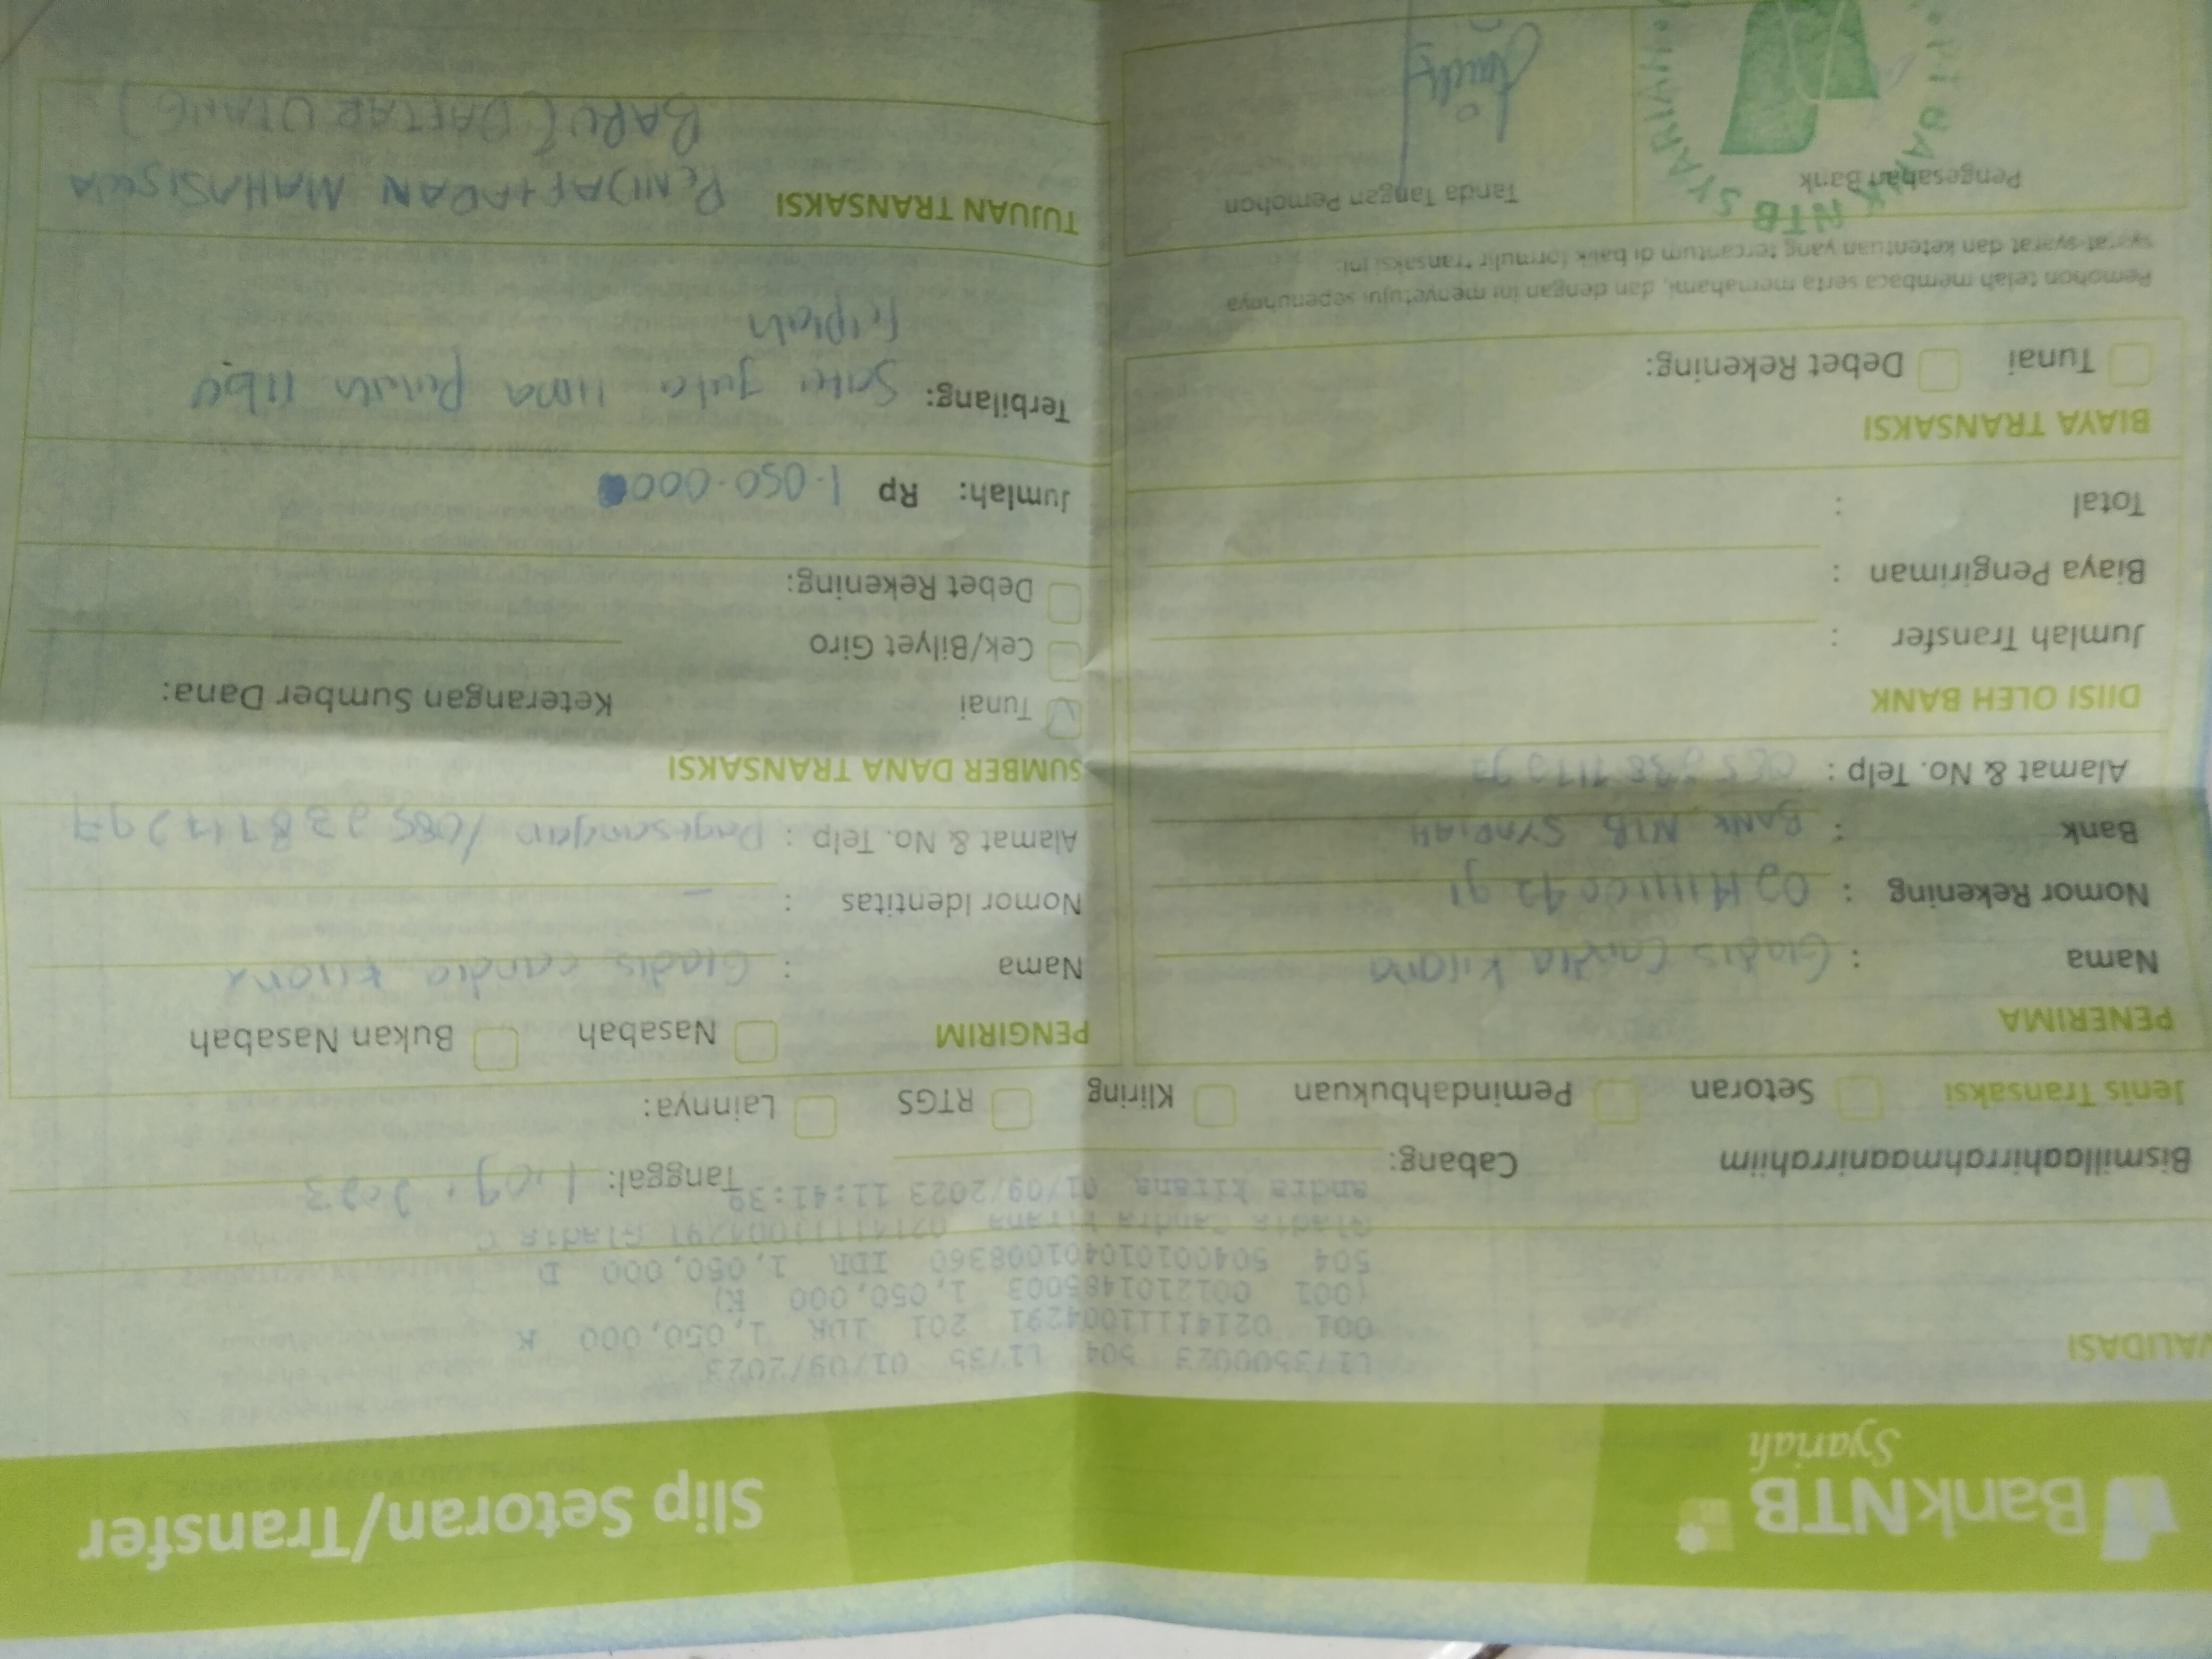 BankNTB
Syariah
Slip Setoran/Transfer
VALIDASI
L173500023 504 L1735 01/09/2023
001 02141111004291 201 IDR 1,050,000 K
(001 0012101485003 1,050,000 K)
504 504001010401008360 IDR 1,050,000 D
Gladis Candra Kirana 02141111004291 Gladis C
andra Kirana 01/09/2023 11:41:39
Bismillaahirrahmaanirrahiim
Cabang:
Tanggal: 1.09.2023
Jenis Transaksi Setoran Pemindahbukuan Kliring RTGS Lainnya:
PENERIMA
Nama : Gladis Candra Kirana
Nomor Rekening :
Bank : BANK NTB SYARIAH
Alamat & No. Telp :
DIISI OLEH BANK
Jumlah Transfer :
Biaya Pengiriman :
Total :
BIAYA TRANSAKSI
Tunai Debet Rekening:
Pemohon telah membaca serta memahami, dan dengan ini menyetujui sepenuhnya
syarat-syarat dan ketentuan yang tercantum di balik formulir transaksi ini.
Pengesahan Bank
Tanda Tangan Pemohon
PT BANK NTB SYARIAH
PENGIRIM Nasabah Bukan Nasabah
Nama : Gladis candra kirana
Nomor Identitas : -
Alamat & No. Telp : Pagesangan / 085238717297
SUMBER DANA TRANSAKSI
Tunai
Keterangan Sumber Dana:
Cek/Bilyet Giro
Debet Rekening:
Jumlah: Rp 1.050.000
Terbilang: Satu juta lima puluh ribu
rupiah
TUJUAN TRANSAKSI PENDAFTARAN MAHASISWA
BARU (DAFTAR UTANG)